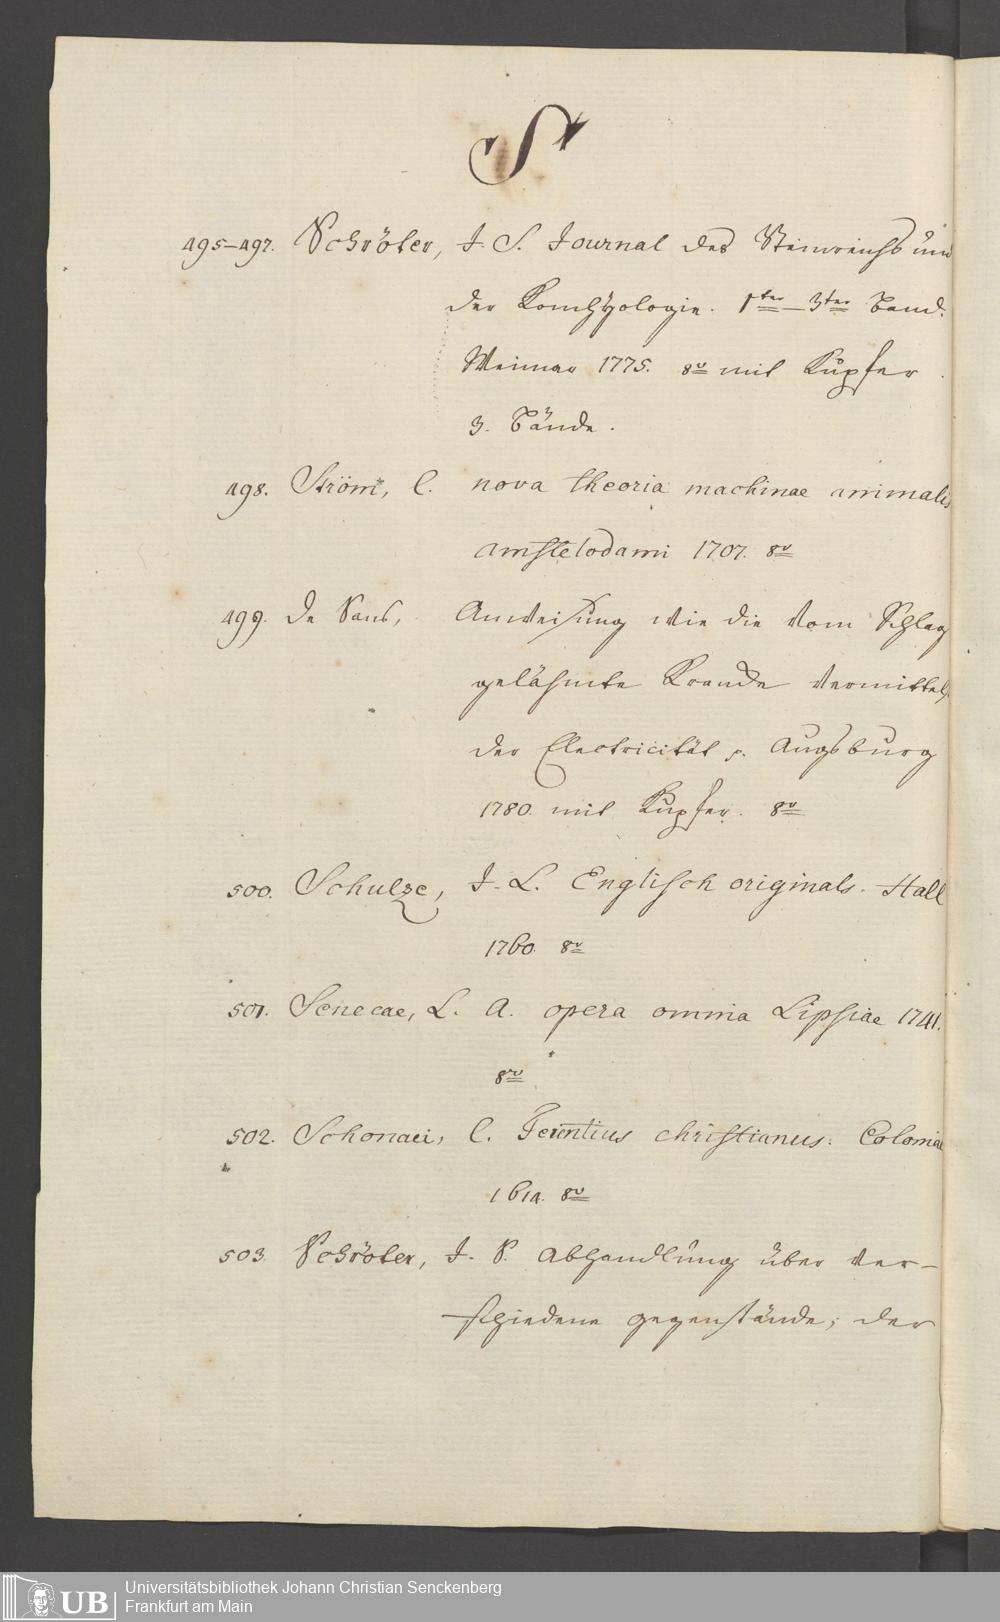 S
495–497. Schröter, J. S. Journal des Steinreichs und
der Konchyologie. 1ter — 3ter Band.
Weimar 1775. 8v mit Kupfer.
3. Bände.
498. Ström, C. nova theoria machinae animalis
amstelodami 1707. 8v
499. De Sans, Anweisung wie die vom Schlag
gelähmte Krancke vermittelst
der Electricität p. Augsburg
1780. mit Kupfer. 8v
500. Schulze, J. L. Englisch originals. Hall
1760. 8v
501. Senecae, L. A. opera omnia Lipsiae 1741.
8v
502. Schonaei, C. Terentius christianus. Coloniae
1614. 8v
503 Schröter, J. S. Abhandlung über ver–
schiedene gegenstände; der
Universitätsbibliothek Johann Christian Senckenberg
UB Frankfurt am Main